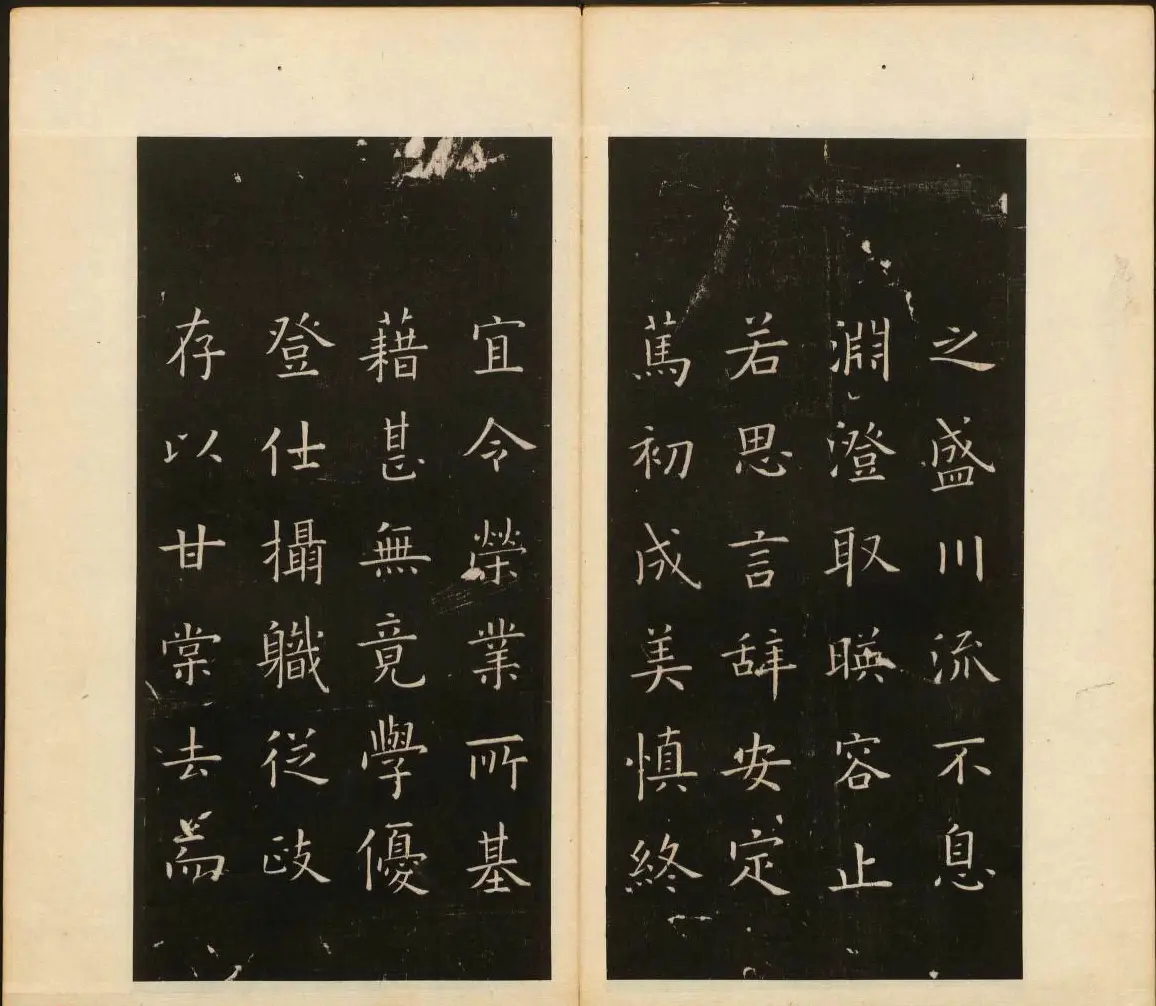 之盛川流不息
淵澄取暎容止
若思言辞安定
篤初成美慎終
宜令榮業所基
藉甚無竟學優
登仕攝軄從政
存以甘棠去而